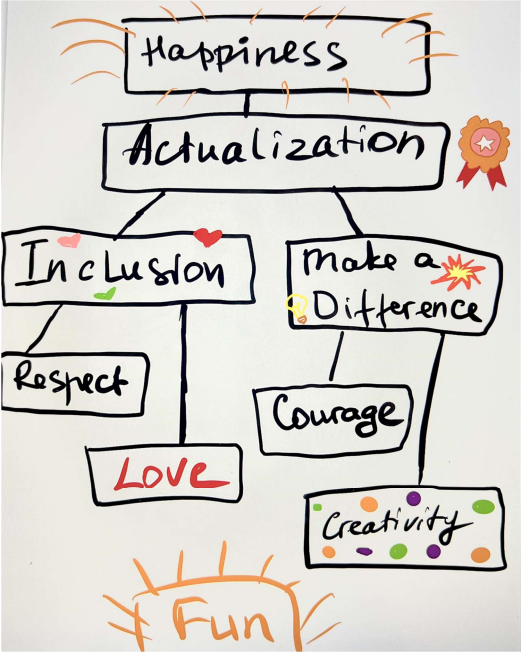 Happiness
Actualization
Inclusion
Make a
Difference
Respect
Courage
Love
Creativity
Fun